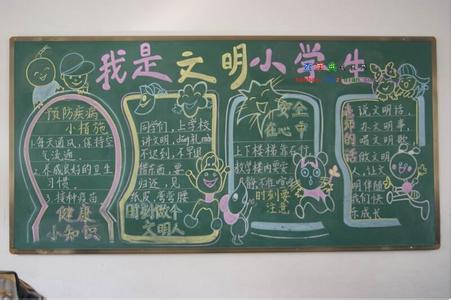 我是文明小学生
预防疾病
小措施
1.每天通风,保持空
气流通
2.养成良好的卫生
习惯.
3.接种疫苗
健康
小知识
同学们,上学校
讲文明,
不迟到
纸皮,弯弯腰
时刻做个
文明人
安全
在心中
上下楼梯靠右行,
教学楼内要安
时刻要
注意
说文明话,
办文明事,
唱文明歌
做文明
人,让文
明伴随
我们快
乐成长